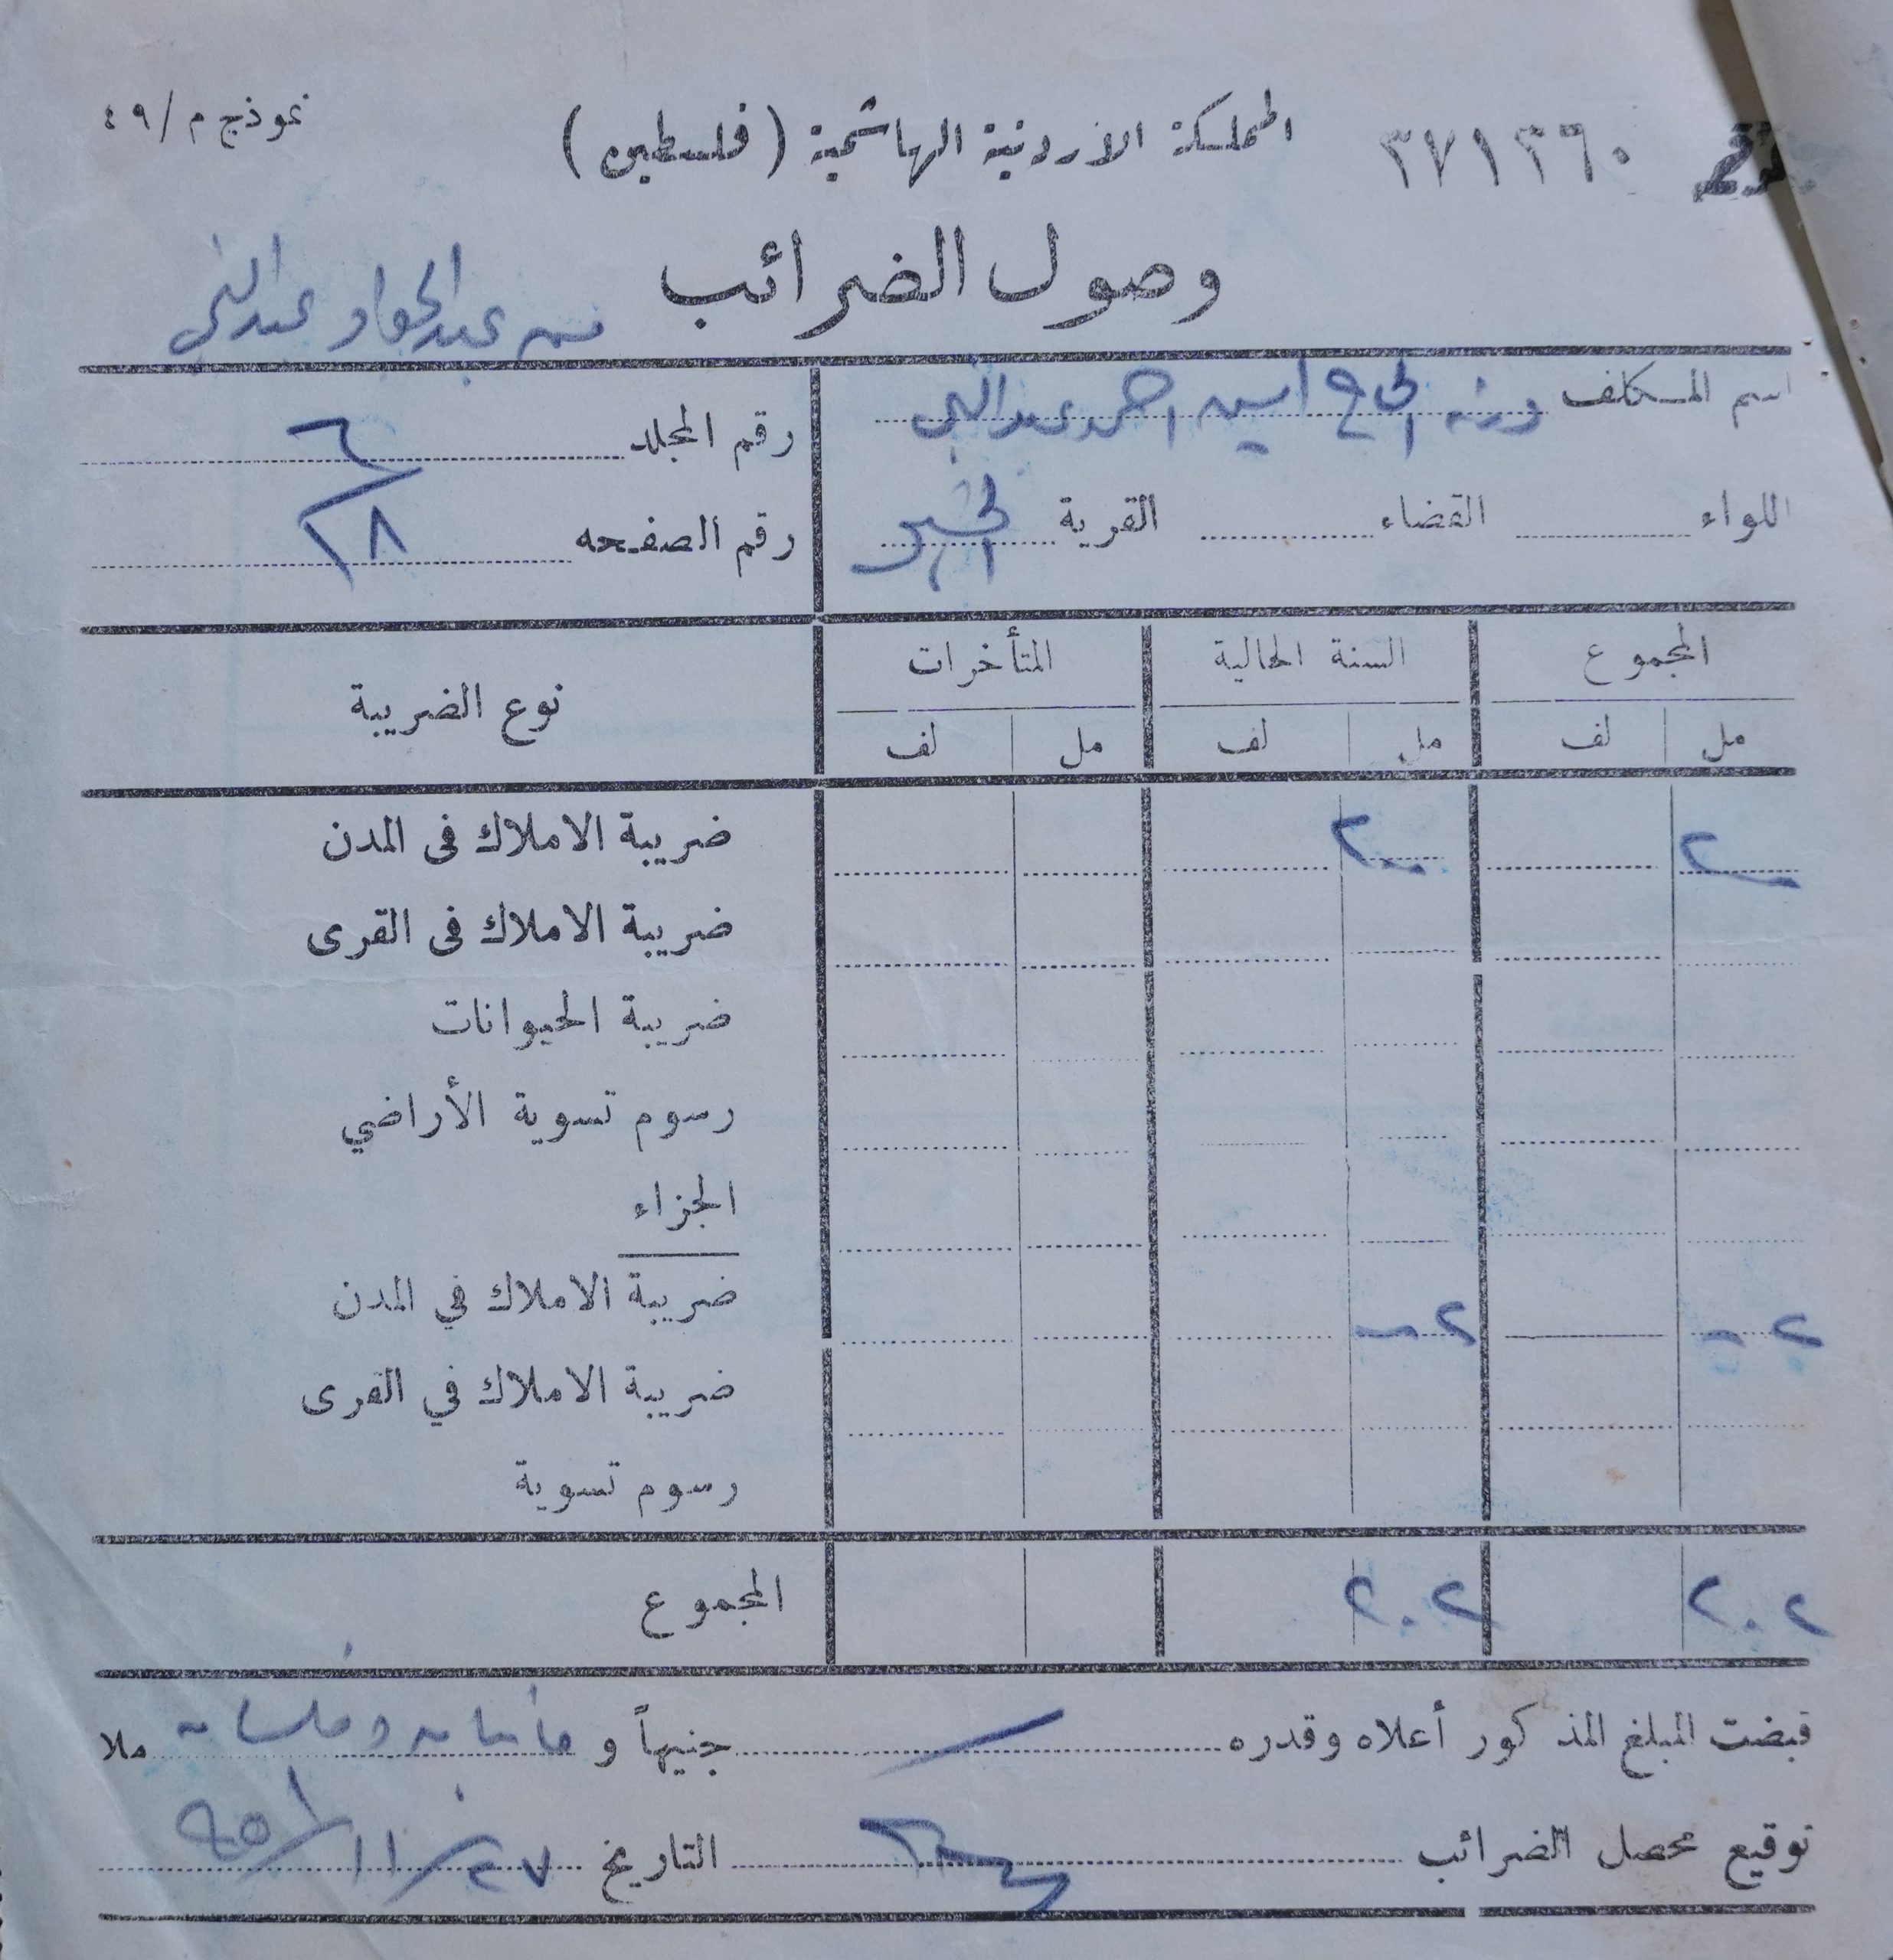 ٣٧١٣٦٠ المملكة الأردنية الهاشمية (فلسطين) نموذج م/٤٩
وصول الضرائب
عبد الجواد عبد النبي
اسم المكلف ورثة الحاج امين احمد عبد النبي
رقم المجلد ٦
اللواء القضاء القرية
رقم الصفحه ٢٨
المجموع السنة الحالية المتأخرات نوع الضريبة
مل لف مل لف مل لف
٢٠٠ ٢٠٠ ضريبة الاملاك في المدن
ضريبة الاملاك في القرى
ضريبة الحيوانات
رسوم تسوية الأراضي
الجزاء
٢ - ٢ - ضريبة الاملاك في المدن
ضريبة الاملاك في القرى
رسوم تسوية
٢٠٢ ٢٠٢ المجموع
قبضت المبلغ المذكور أعلاه وقدره جنيهاً و مائتان وفلسان ملا
توقيع محصل الضرائب التاريخ ٢٧/١١/٩٥٥